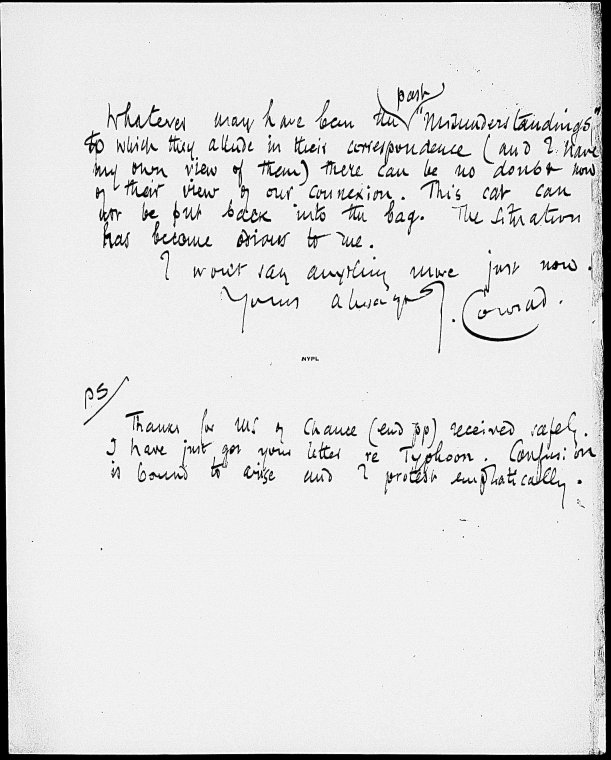 past
Whatever may have been the "Misunderstandings"
to which they allude in their correspondence (and I have
my own view of them) there can be no doubt now
of their view of our connexion. This cat can
not be put back into the bag. The situation
has become odious to me.
I won't say anything more just now.
Yours always J. Conrad.
NYPL
PS
Thanks for MS of Chance (end pp) received safely.
I have just got your letter re Typhoon. Confusion
is bound to arise and I protest emphatically.